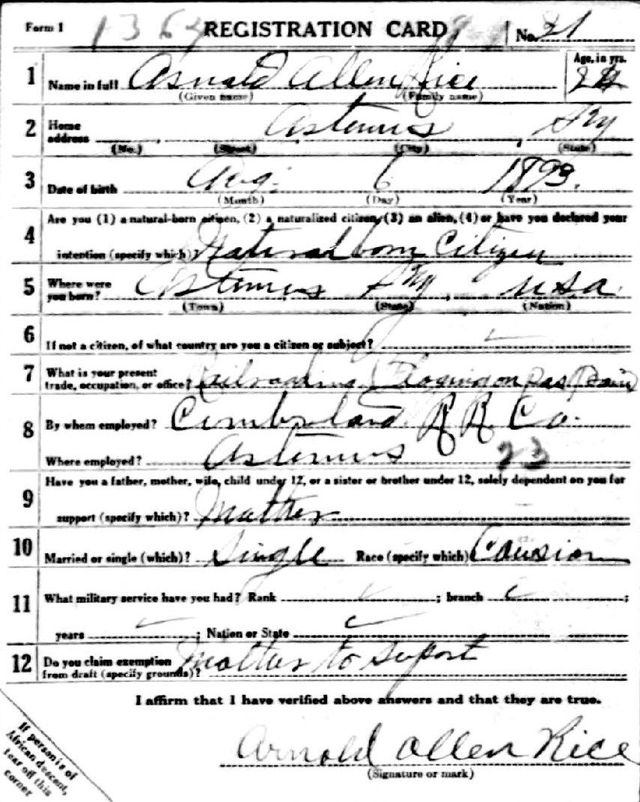 Form 1 1364 REGISTRATION CARD No. 21
1 Name in full Arnold Allen Rice Age, in yrs.
(Given name) (Family name) 24
2 Home address Artemus Ky
(No.) (Street) (City) (State)
3 Date of birth Aug. 6 1893.
(Month) (Day) (Year)
4 Are you (1) a natural-born citizen, (2) a naturalized citizen, (3) an alien, (4) or have you declared your
intention (specify which)? Natural born Citizen
5 Where were you born? Artemus Ky, USA
(Town) (State) (Nation)
6 If not a citizen, of what country are you a citizen or subject?
7 What is your present
trade, occupation, or office? Railroading Flagging on pas train
8 By whom employed? Cumberland R R Co.
Where employed? Artemus 23
9 Have you a father, mother, wife, child under 12, or a sister or brother under 12, solely dependent on you for
support (specify which)? Mother
10 Married or single (which)? Single Race (specify which)
11 What military service have you had? Rank ; branch
years ; Nation or State
12 Do you claim exemption
from draft (specify grounds)? Mother to suport
I affirm that I have verified above answers and that they are true.
Arnold Allen Rice
(Signature or mark)
If person is of
African descent,
tear off this
corner